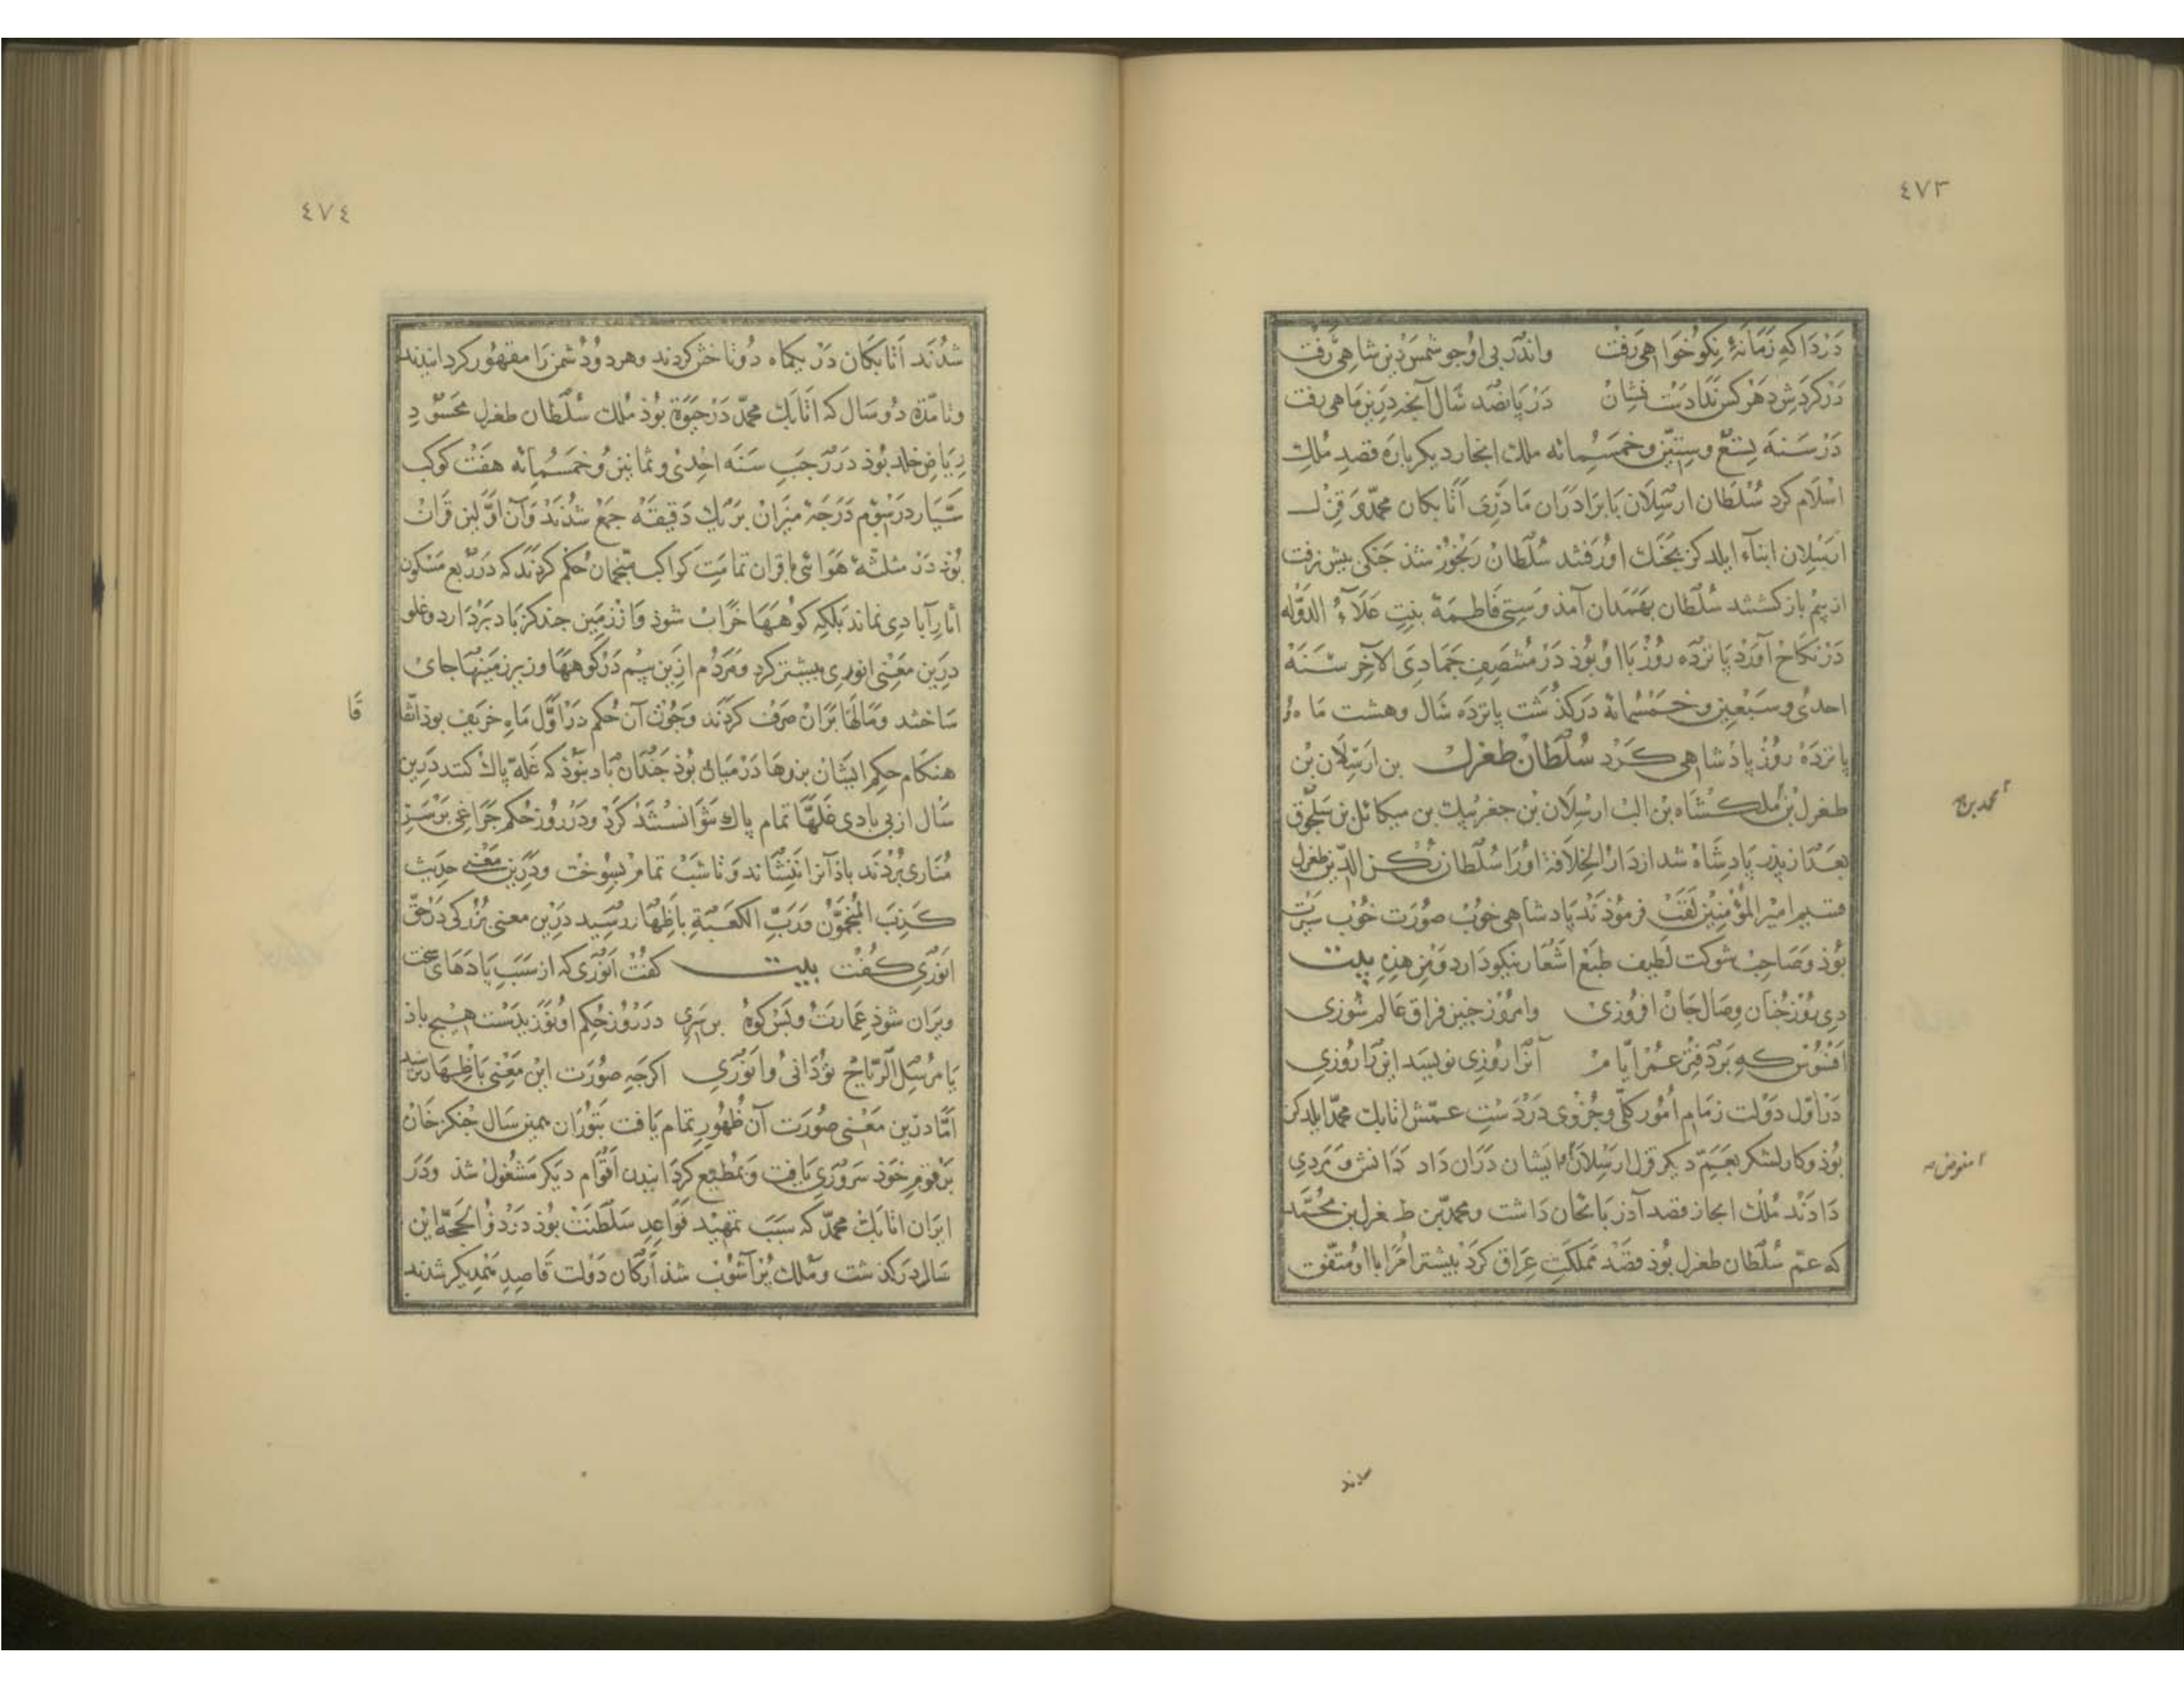 ٤٧٣
دَرْدَا که زَمَانَهٔ نِکوخوَاهی رفت وانْدَر پی اوُ جو شمسِ دین شاهی رَفت
دَر کردَشِ دَهر کس ندادست نشان دَر پانصَد سَال آنچ درین ماهی رفت
دَرْ سَنهَ تِسْعَ وسِتیّن وخمسُمِائه ملك ابخاز دیکر باره قصدِ مُلكِ
اسْلام کرد سُلطان ارسِلان بَا برَادَران مَاذری اَتابکان محمّد وَ قزل
ارسِلان ابناء ایلدکز بجَنك اورَفتند سُلْطانْ رَنجُور شذ جَنکی بیش نرفت
از بیم باز کشتند سُلطان بهَمَدان آمذ وسِتی فاطِمَة بنتِ عَلاءُ الدَوّله
دَرْ نکاح آوَرد پانزدَه روُز با اوُ بوُذ دَرْ مُنتصَفِ جَمادَی الآخِر سَنَهَ
احدیٰ وسَبْعین وخمسُمائة درکذشت پانزدَه سَال وهشت مَاه و
پانزدَهْ روُز پادْشاهی کَرْد سُلطانْ طغرل بن ارَسِلان بن
طغرل بن مَلکشاه بن الب ارسِلان بن جغربیك بن میکائل بن سَلجوق
محمد بن
بعَد از پذر پادشاه شد از دَارُ الخِلافة اوُرَا سُلطان رُکن الدّین طغرل
قسیم امیر المؤمنین لقبَ فرموُذند پادشاهی خوُب صوُرَت خوُب سیرَت
بوُذ وصَاحِب شوکت لَطیف طبْع اشْعار نیکو دارد وَمِن هذِهِ بیت
دِی روُز چُنان وصَال جَانْ افروُزی وامروُز چنین فراق عَالم سوُزی
افسُوس که برَ دَفتر عمُرْ ایّامْ آنرا روُزی نویسَد این رَا روُزی
دَر اوّل دَوْلت زمَام اُموُر کلّی وجُزوی دَرْ دَستِ عمّش اتابك محمّد ایلدکز
بوُذ وکار لشکر بعَمّ دیکر قزل ارسِلان ایشان دَران دَاد دَانش وَ مَردی
مفوض
دَادَند مُلك ابخاز قصد آذربَایجان دَاشت ومحمّد بن طغرل بن محمَّد
که عمّ سُلطان طغرل بوُذ قصَد مَملکَتِ عِرَاق کرَد بیشتر امُرا با او مُتّفق
شدند
٤٧٤
شدُنَد اَتابَکان دَرْ یکماه دُو تاختن کردند وهر دوُ دُشمن رَا مقهوُر کردانیدند
وتا مدّة دوُ سَال که اَتابَك محمّد دَرْ حیَوة بوُذ مُلك سُلْطان طغرل محسُوُدِ
ریَاض خلد بوُذ در رَجَبِ سَنَه احْدیٰ وثمانین وخمسُمائه هفت کوکب
سَیّار دَر سِوّم دَرَجَهٔ میزانْ برَ یك دَقیقه جمْع شدُند وَآن اوّلین قرَانْ
بوُذ دَرْ مثلثهٔ هَوائی با قران تمامَتِ کواکب منجّمان حُکم کردَند که در رُبع مسْکون
آثار آبادی نماند بَلکه کوهَها خرَاب شوذ وَاز زمَین چند کز باد برَدارد وغلو
دَرین معَنی انوری بیشتر کرد ومَردُم ازین بیم دَر کوهها وزیر زمَینها جای
ساختند ومَالها برَان صَرف کرَدند وجوُن آن حُکم در اوّل ماهِ خریف بوذ اتفّا
قا
هنکام حکم ایشان بزرها دَرمیان بوُذ چندان باد نبوُذ که غَلّه پاك کنند دَرین
سَال از بی بادی غلهّا تمام پاك نتوَانستند کرد ودَر روُز حُکم چرَاغی برَ سَرِ
مُنَاری بُردْند باذ آنرا ننشاند وَتا شب تمامْ بسِوخت ودَرین معَنی حدیث
کذبَ المنجّموُن ورَبِّ الکعَبَةِ باظهار رسِید درَین معنی بُزُرکی دَرْ حَقّ
انوَری کُفت بیت کفت انوَری که از سَبَب بَادهای سَخت
ویرَان شوُذ عمَارتُ وبَس کوهْ بر سَری در روُز حُکم او نوُزید ست هیچ باذ
یا مُرسِل الرّیاح توُ دَانی وانوَری اکرچه صوُرَت این معَنی بَاظِهَار نرسید
امَّا درین معَنی صوُرَت آن ظهوُر تمام یَافت بتوُران همین سَال چنکز خان
برَ قوم خوَد سَروَری یافت وَ بمُطیع کردَانیدن اقوَام دیکر مَشغوُل شذ ودَر
ایرَان اتابك محمّد که سَبَب تمهید قوَاعِدِ سَلْطنت بوُذ دَرْ ذُو الحجّه این
سَال درکذشت ومُلك پُر آشوُب شذ اَرْکان دَولت قاصِدِ همدیکر شدند